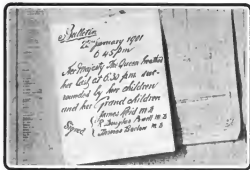 Bulletin
22nd January 1901
6.45 pm
Her Majesty The Queen breathed
her last at 6.30 pm sur-
rounded by her children
and her Grand children
Signed
James Reid M.D
R. Douglas Powell M.D
Thomas Barlow M.D